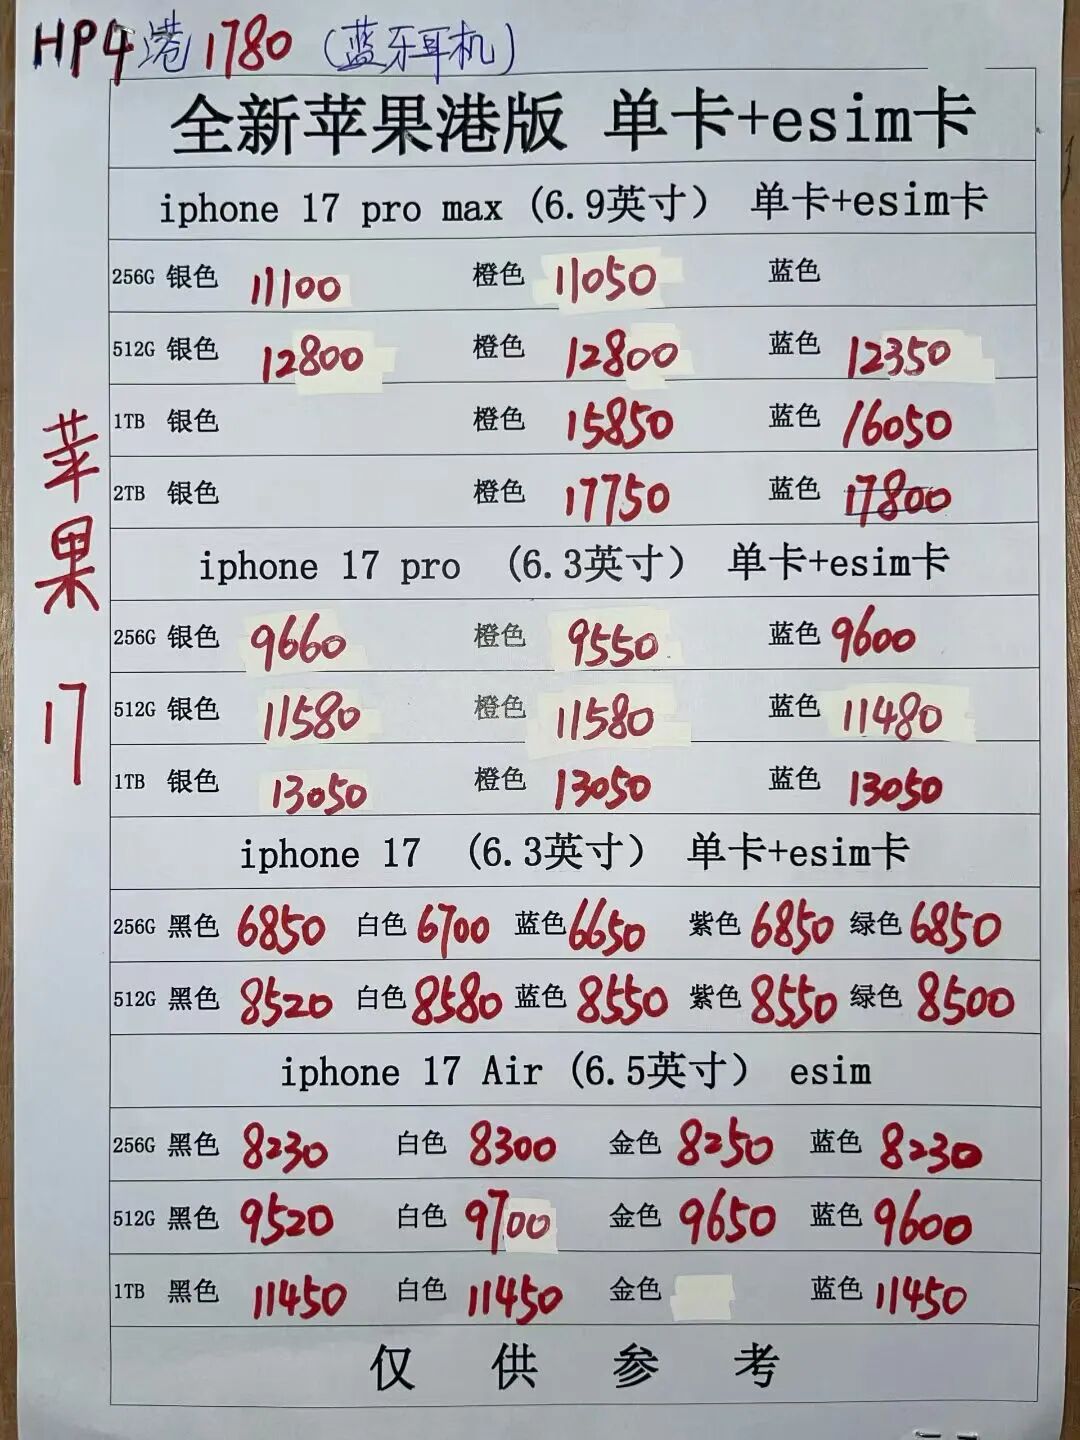 HP4港1780（蓝牙耳机）
全新苹果港版 单卡+esim卡
iphone 17 pro max（6.9英寸） 单卡+esim卡
256G 银色 11100 橙色 11050 蓝色
512G 银色 12800 橙色 12800 蓝色 12350
1TB 银色 橙色 15850 蓝色 16050
2TB 银色 橙色 17750 蓝色 17800
iphone 17 pro （6.3英寸） 单卡+esim卡
256G 银色 9660 橙色 9550 蓝色 9600
512G 银色 11580 橙色 11580 蓝色 11480
1TB 银色 13050 橙色 13050 蓝色 13050
iphone 17 （6.3英寸） 单卡+esim卡
256G 黑色 6850 白色 6700 蓝色 6650 紫色 6850 绿色 6850
512G 黑色 8520 白色 8580 蓝色 8550 紫色 8550 绿色 8500
iphone 17 Air（6.5英寸） esim
256G 黑色 8230 白色 8300 金色 8250 蓝色 8230
512G 黑色 9520 白色 9700 金色 9650 蓝色 9600
1TB 黑色 11450 白色 11450 金色 蓝色 11450
仅供参考
苹果17